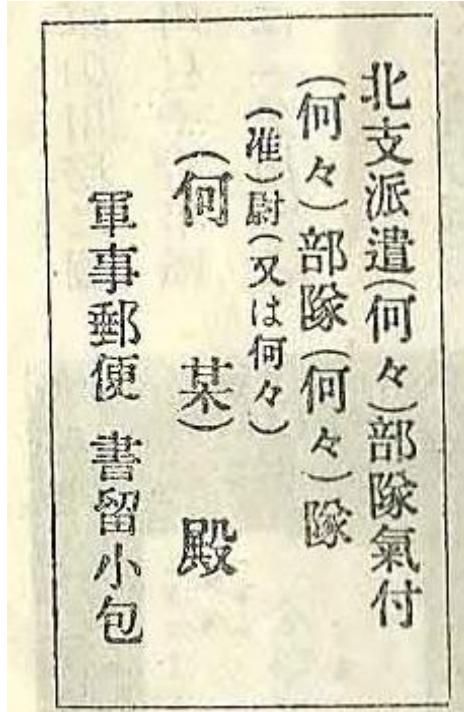 北支派遣(何々)部隊氣付
(何々)部隊(何々)隊
(准)尉(又は何々)
(何某)殿
軍事郵便 書留小包